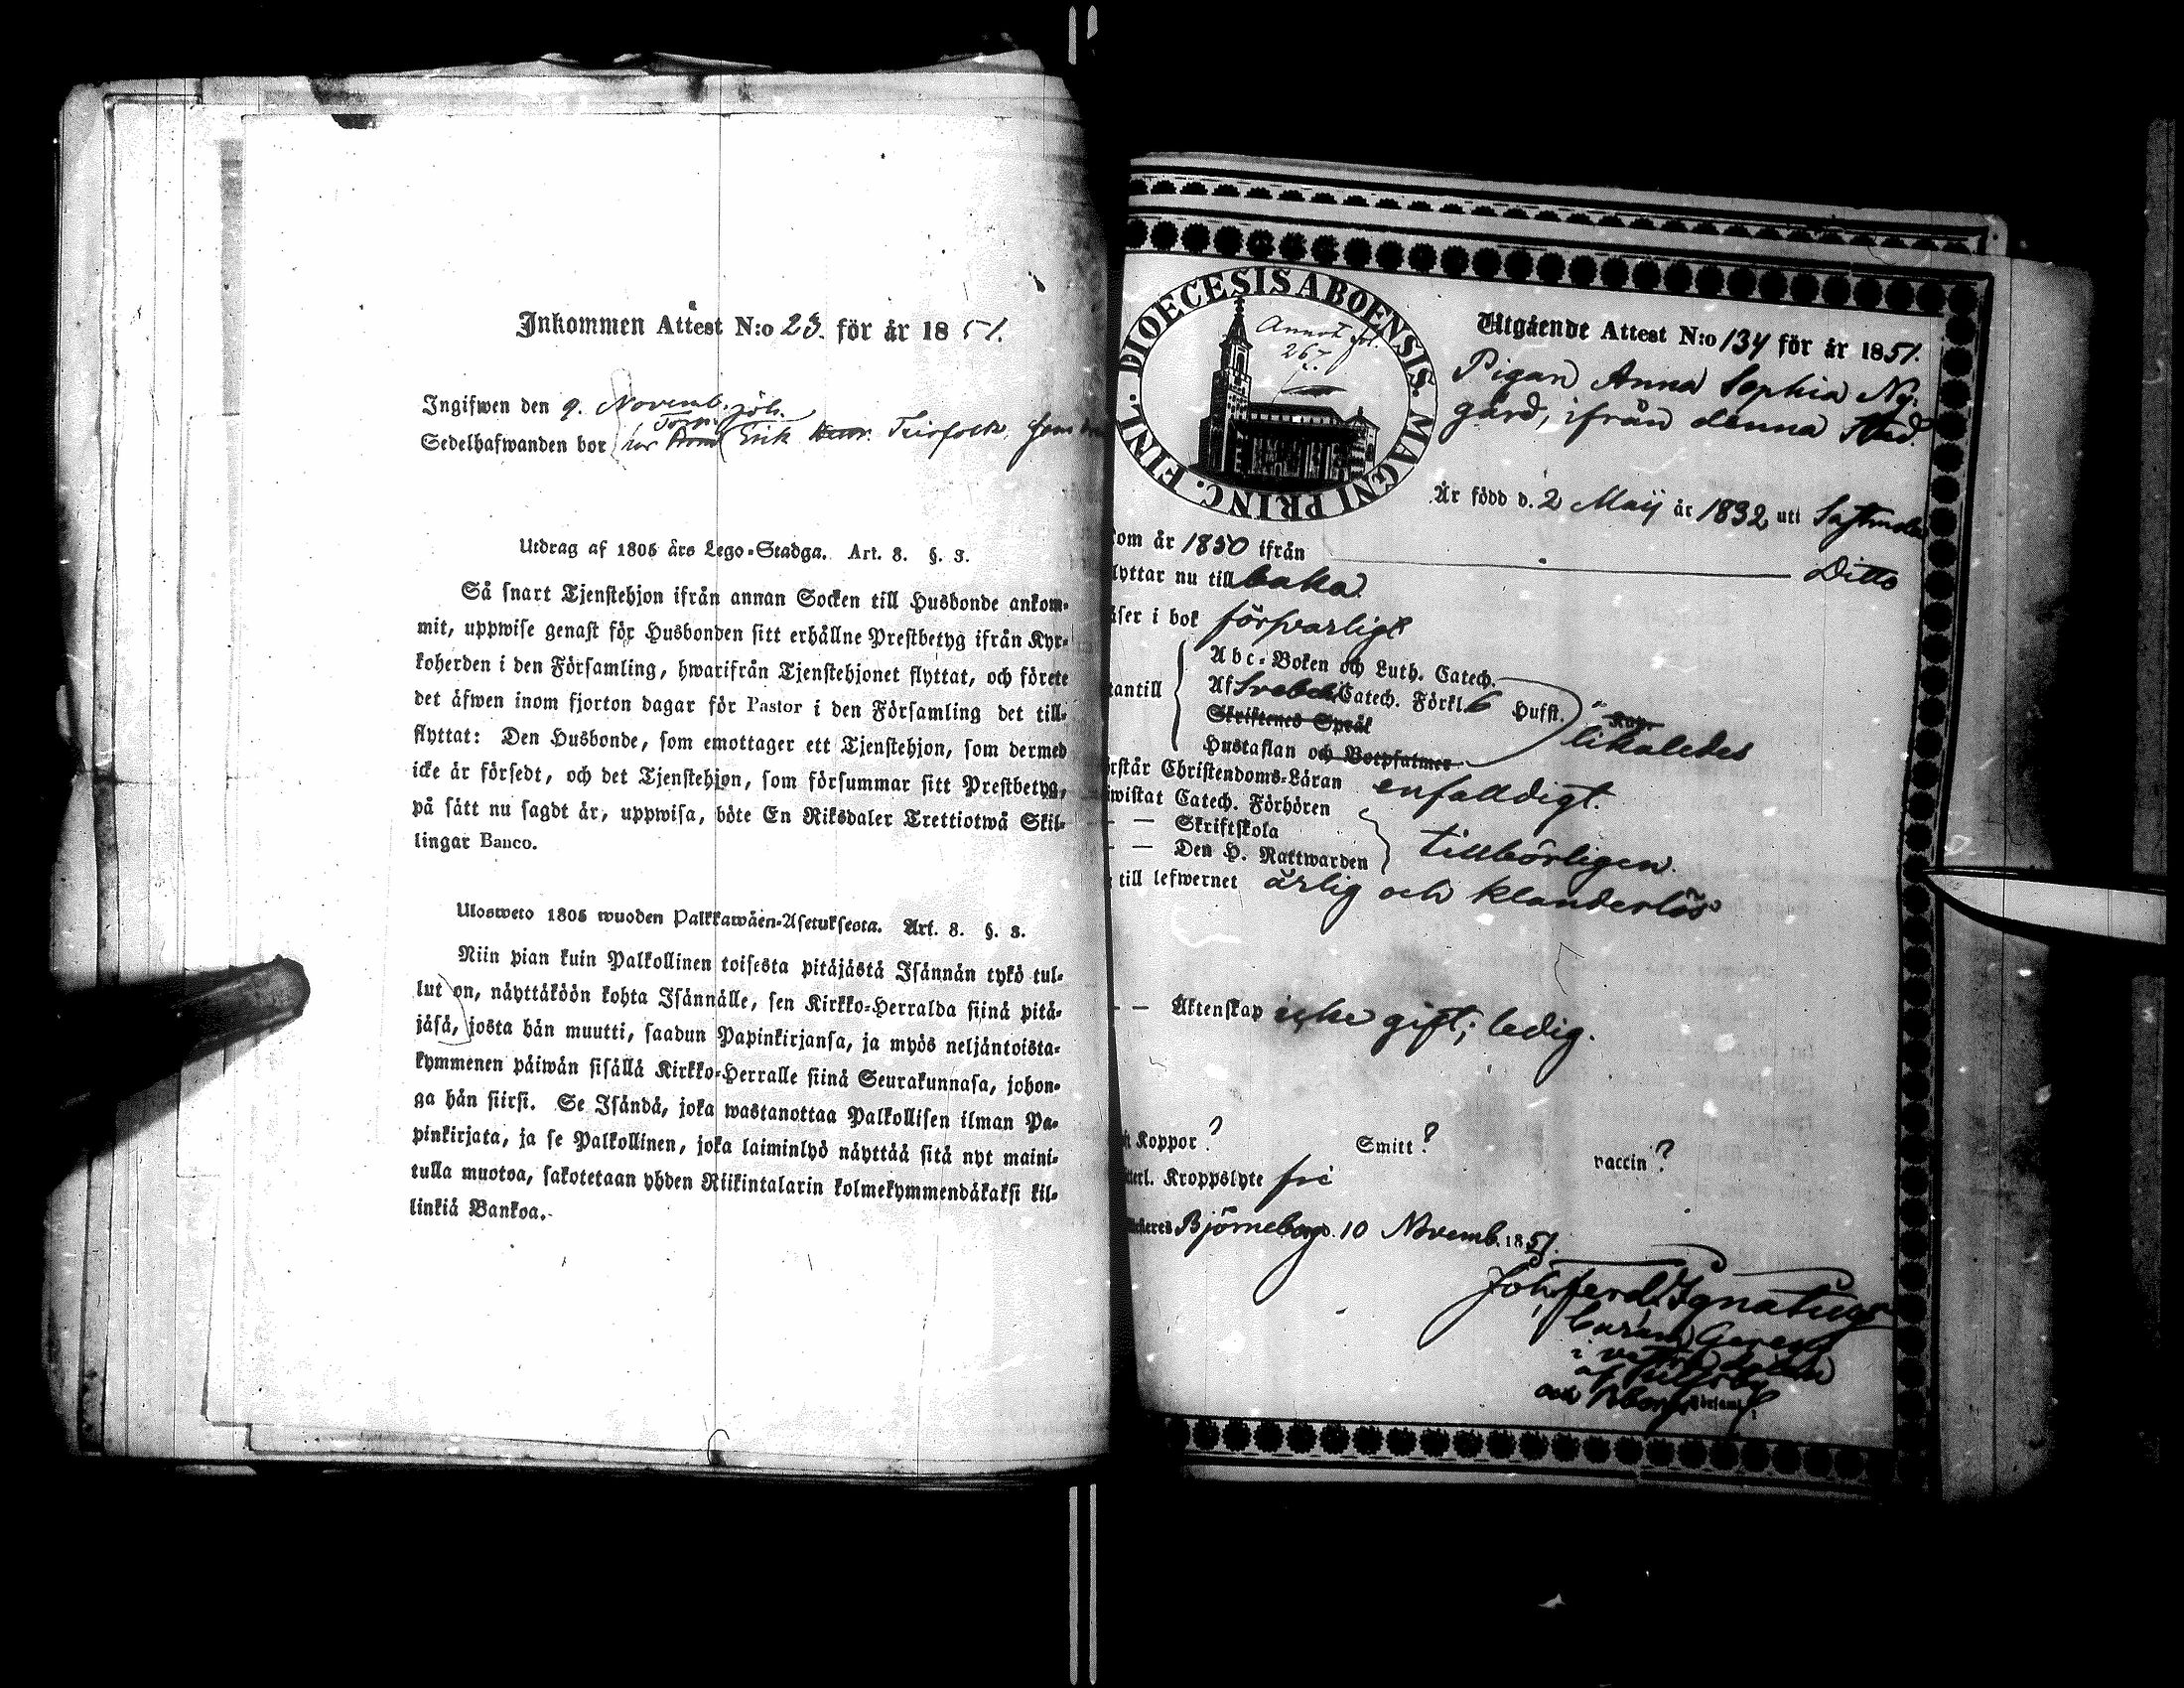 Inkommen Attest N:o 23. för år 1851.
Ingifwen den 9. Novemb.
Sedelhafwanden bor hos Erik
Utdrag af 1805 års Lego-Stadga. Art. 8. §. 3.
Så snart Tjenstehjon ifrån annan Socken till Husbonde ankom-
mit, uppwise genast för Husbonden sitt erhållne Prestbetyg ifrån Kyr-
koherden i den Församling, hwarifrån Tjenstehjonet flyttat, och förete
det äfwen inom fjorton dagar för Pastor i den Församling det till-
flyttat: Den Husbonde, som emottager ett Tjenstehjon, som dermed
icke är försedt, och det Tjenstehjon, som försummar sitt Prestbetyg,
på sätt nu sagdt är, uppwisa, böte En Riksdaler Trettiotwå Skil-
lingar Banco.
Ulosweto 1805 wuoden Palkkawäen-Asetuksesta. Art. 8. §. 3.
Niin pian kuin Palkollinen toisesta pitäjästä Isännän tykö tul-
lut on, näyttäköön kohta Isännälle, sen Kirkko-Herralda siinä pitä-
jäsä, josta hän muutti, saadun Papinkirjansa, ja myös neljäntoista-
kymmenen päiwän sisällä Kirkko-Herralle siinä Seurakunnasa, johon-
ga hän siirsi. Se Isändä, joka wastanottaa Palkollisen ilman Pa-
pinkirjata, ja se Palkollinen, joka laiminlyö näyttää sitä nyt maini-
tulla muotoa, sakotetaan yhden Riikintalarin kolmekymmendäkaksi kil-
linkiä Bankoa.
DIOECESIS ABOENSIS. MAGNI PRINC. FINL.
Annot. fol.
267.
Utgående Attest N:o 134 för år 1851.
Pigan Anna Sophia Ny-
gård, ifrån denna Stad.
Är född d. 2 Maij år 1832 uti
om år 1850 ifrån Ditto
lyttar nu till baka
äser i bok försvarligt
Abc-Boken och Luth. Catech.
antill Af Svebelii Catech. Förkl. 6 Hufst.
Skriftenes Språk likaledes
Hustaflan och Botpsalmer
rstår Christendoms-Läran enfalldigt.
wistat Catech. Förhören
— — Skriftskola tillbörligen.
— — Den H. Nattwarden
till lefwernet ärlig och klanderlös
— — Äktenskap icke gift; ledig.
t Koppor? Smitt? vaccin?
terl. Kroppslyte fri
Björneborg d. 10 Novemb. 1851.
Joh. Ferd. Ignatius
och Församl.